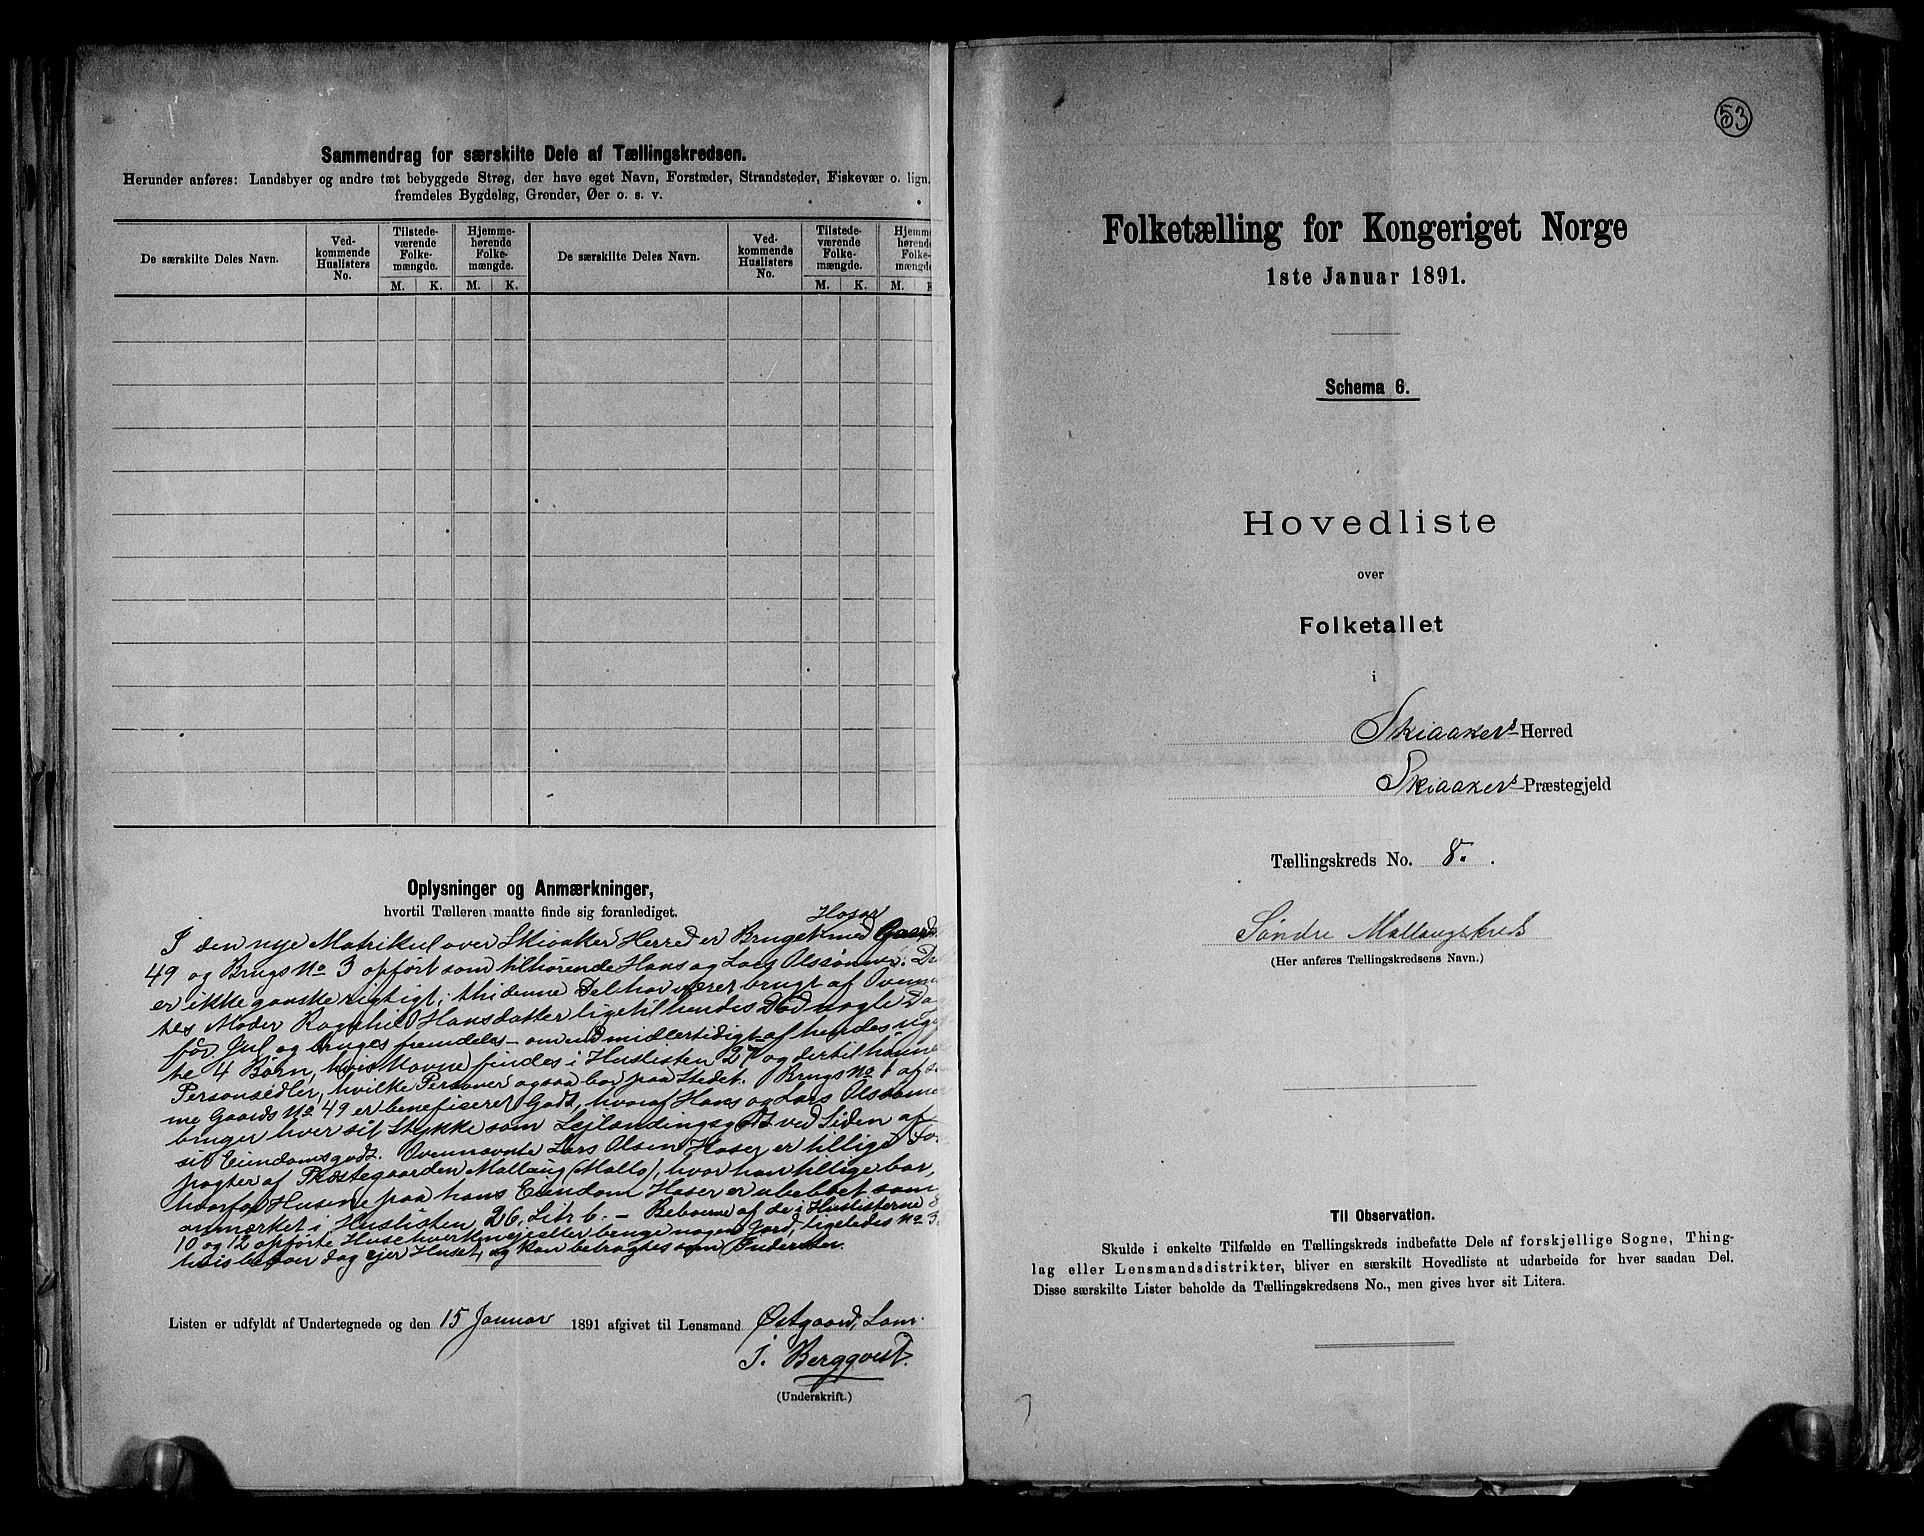 Sammendrag for særskilte Dele af Tællingskredsen.
Herunder anføres: Landsbyer og andre tæt bebyggede Strøg, der have eget Navn, Forstæder, Strandsteder, Fiskevær o. lign.
fremdeles Bygdelag, Grender, Øer o. s. v.
De særskilte Deles Navn.
Ved-
kommende
Huslisters
No.
Tilstede-
værende
Folke-
mængde.
Hjemme-
hørende
Folke-
mængde.
De særskilte Deles Navn.
Ved-
kommende
Huslisters
No.
Tilstede-
værende
Folke-
mængde.
Hjemm
hørend
Folke-
mængd
M. K. M. K. M. K. M.
Oplysninger og Anmærkninger,
hvortil Tælleren maatte finde sig foranlediget.
Hoser
I den nye Matrikul over Skiaaker Herred er Bruget med Gaards
49 og Brugs No 3 opført som tilhørende Hans og Lars Olssønner. De
er ikke ganske rigtigt; thi denne Del har været brugt af Ovenn
tes Moder Ragnhild Hansdatter lige til hendes Død nogle Da
før Jul og bruges fremdeles – omend midlertidigt – af hendes ugif
te 4 Børn, hvis Navne findes i Huslisten 27 og dertil hørende
Personsedler, hvilke Personer ogsaa bor paa Stedet. Brugs No 1 af
me Gaards No 49 er beneficeret Gods, hvoraf Hans og Lars Olssønner
bruger hver sit Stykke som Lejlændingsgods ved Siden af
sit Eiendomsgods. Ovennævnte Lars Olsen Hoser er tillige For
pagter af Præstegaarden Mallaug (Mallo), hvor han tillige bor,
hvorfor Husene paa hans Eiendom Hoser er ubeboet som
anmærket i Huslisten 26, Litr b. – Beboerne af de i Huslisterne 8
10 og 12 opførte Huse hverken eje eller bruge nogen Jord, ligeledes No 3
hvis beboer dog ejer Huset, og kan betragtes som Inderster.
Listen er udfyldt af Undertegnede og den 15 Januar 1891 afgivet til Lensmand Østgaard, Lom.
J. Bergqvist.
(Underskrift.)
53
Folketælling for Kongeriget Norge
1ste Januar 1891.
Schema 6.
Hovedliste
over
Folketallet
i
Skiaakers Herred
Skiaakers Præstegjeld
Tællingskreds No. 8.
Søndre Mallaugskreds
(Her anføres Tællingskredsens Navn.)
Til Observation.
Skulde i enkelte Tilfælde en Tællingskreds indbefatte Dele af forskjellige Sogne, Thing-
lag eller Lensmandsdistrikter, bliver en særskilt Hovedliste at udarbeide for hver saadan Del.
Disse særskilte Lister beholde da Tællingskredsens No., men gives hver sit Litera.